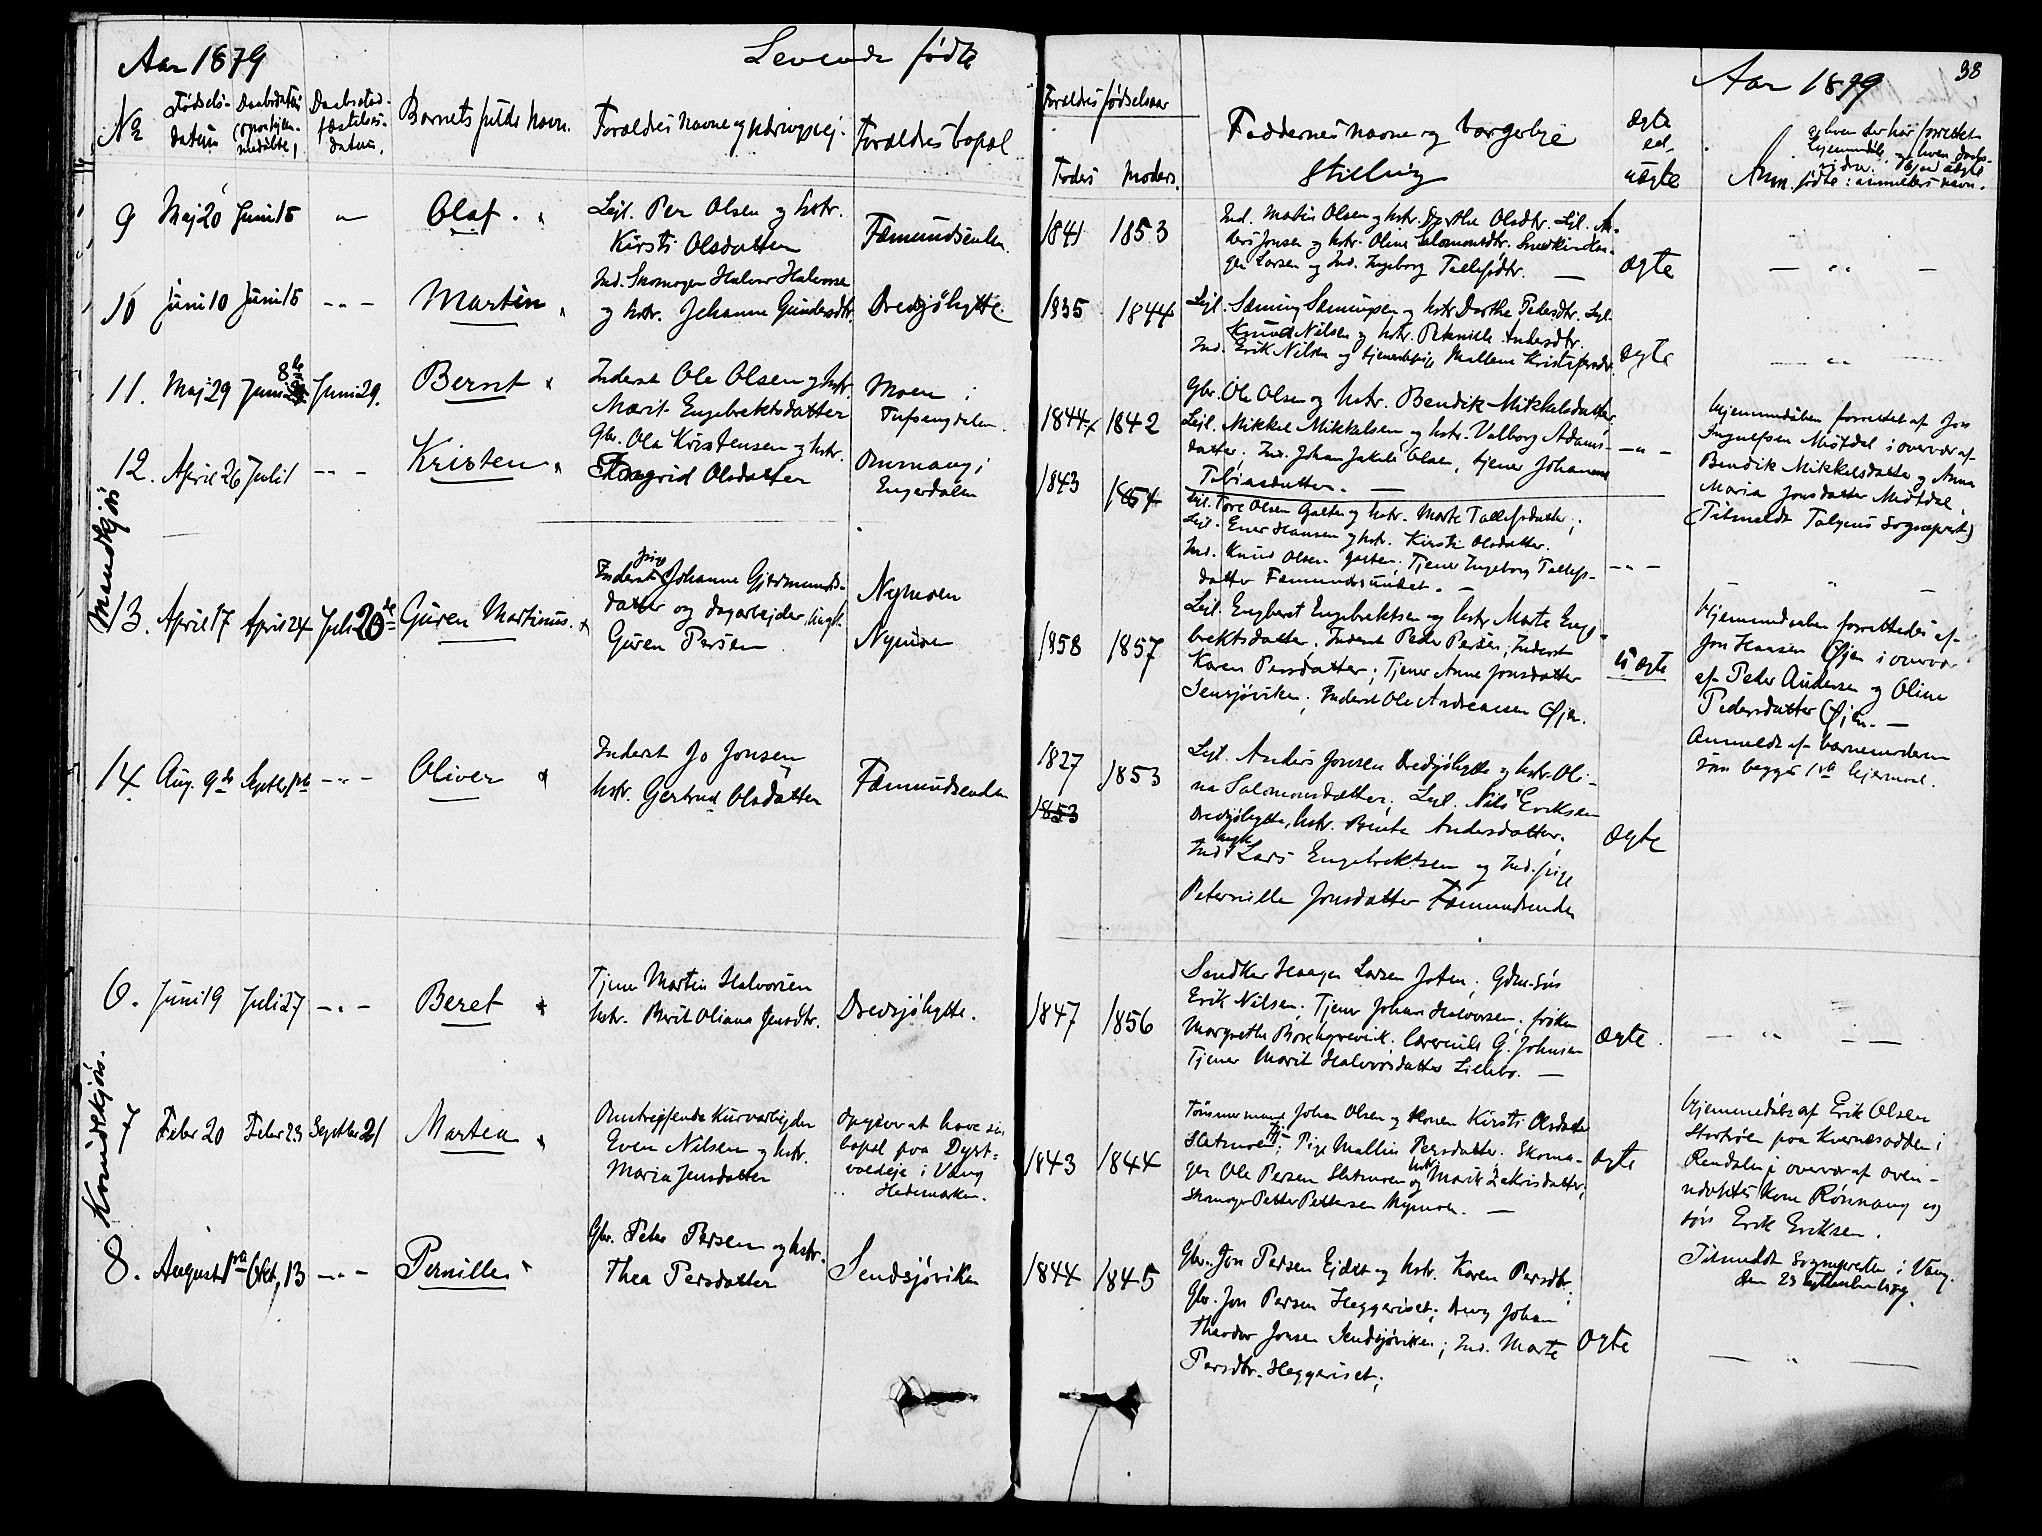 Aar 1879
Levende fødte
Aar 1879
38
No
Fødsels-
datum
Daabsdatum
hjem-
medøbte,
Daabsstad-
fæstelses-
datum.
Barnets fulde Navn.
Forældres navne og næringsvej.
Forældres bopæl
Forældres fødselsaar
Faders
Moders.
Faddernes navne og borgerlige
stilling
Ægte
el.
uægte
Anm.
Mandkjøn
9
Maj 20
Juni 15
Olaf.
Lejl. Per Olsen og hstr.
Kirsti Olsdatter
Fæmundsenden
1841
1853
Ind. Martin Olsen og hstr. Dorthe Olsdtr. Lejl. An-
ders Jonsen og hstr. Oline Salomonsdtr.
Larsen og Ind. Ingeborg Tollefsdtr. —
Ægte
— " —
10
Juni 10
Juni 15
— " —
Martin
Ind. Skomager Halvor Halvorsen
og hstr. Johanne Gundersdtr.
Dredsjøhytte.
1835
1844
Lejl. Sæming Sæmingsen og hstr. Dorthe Pedersdtr. Lejl.
Knud Nilsen og hstr. Pernille Andersdtr.
Ind. Erik Nilsen og tjenestepige Mallene Kristofersdtr.
Ægte
— " —
11.
Maj 29
Juni 8de
Juni 29.
Bernt
Inderst Ole Olsen og hstr.
Marit Engebrektsdatter
Moen i
Tufsengdalen.
1844
1842
Gbr. Ole Olsen og hstr. Bendik Mikkelsdatter
Lejl. Mikkel Mikkelsen og hstr. Valborg Adams-
datter; Ind. Johan Jakob Olsen, tjener Johanna
Tobiasdatter. —
— " —
Hjemmedåben forrettet af Jon
Ingulfsen Mistdal i overvær af
Bendik Mikkelsdatter og Anne
Maria Jonsdatter Mistdal.
(Tilmeldt Tolgens Sogneprest)
12.
April 26
Juli 1
— " —
Kristen
Gbr. Ole Kristensen og hstr.
Ingrid Olsdatter
Engerdalen
1843
1854
Lejl. Tore Olsen Galten og hstr. Marte Tollefsdatter;
Lejl. Ener Hansen og hstr. Kirsti Olsdatter.
Ind. Knud Olsen Galten; Tjener Ingeborg Tollefs-
datter Fæmundsundet. —
— " —
— " —
13.
April 17
April 24
Juli 20de
Gúren Martinus.
Inderst pige Johanne Gjermunds-
datter og dagarbejder, Ungk.
Gúren Persen
Nymoen
Nymoen
1858
1857
Lejl. Engebret Engebrektsen og hstr. Marte Enge-
brektsdatter. Inderst Peder Persen; Inderst
Karen Persdatter; Tjener Anne Jonsdatter
Sensjøviken; Inderst Ole Andreassen Øjen.
Uægte
Hjemmedaaben forrettedes af
Jon Hansen Øjen i overvær
af Peder Andersen og Oline
Pedersdatter Øjen. —
Anmeldt af barnemoderen
som begges 1ste lejermaal.
14.
Aug. 9de
Septbr.
— " —
Oliver
Inderst Jo Jonsen og
hstr. Gertrud Olsdatter
Fæmundsenden
1827
1853
1853
Lejl. Anders Jonsen Dredsjøhytte og hstr. Oli-
ne Salomonsdatter; Lejl. Nils Eriksen
Dredsjøhytte, hstr. Berte Andersdatter;
Ind. ungk. Lars Engebrektsen og Ind. pige
Peternille Jonsdatter Fæmundsenden
Ægte
Kvindekjøn.
6.
Juni 19
Juli 27
— " —
Beret
Tjener Martin Halvorsen
hstr. Berit Oliana Jensdtr.
Dredsjøhytte.
1847
1856
Larsen Joten; Gdm.søn
Erik Nilsen; Tjener Johan Halvorsen; frøken
Margrethe Borchgrevink. G. Johnsen
Tjener Marit Halvorsdatter Lillebo. —
Ægte.
— " —
7
Febr 20
Febr 23
Septbr 21
Martea
Omstreifende Kurvarbejder
Even Nilsen og hstr.
Maria Jensdatter
Opgiver at have sin
bopæl paa Dyst-
voldeje i Vang
Hedemarken.
1843
1844
Tømmermand Johan Olsen og Konen Kirsti Olsdatter
Sletmoen; Pige Mallin Persdatter. Skoma-
ger Ole Persen Sletmoen og hstr. Marit Zakrisdatter;
Skomager Petter Pettersen Nymoen. —
Ægte
Hjemmedøbt af Erik Olsen
paa Kvernesodden i
Rendalen i overvær af oven-
nævntes kone Rønnaug og
søn Erik Eriksen.
Tilmeldt Sognepresten i Vang.
den 23 September 1879.
8.
August 1ste
Okt. 13
— " —
Pernille
Gbr. Peder Persen og hstr.
Thea Persdatter
Sendsjøviken
1844
1845
Gbr. Jon Persen Ejdet og hstr. Karen Persdtr.;
Gbr. Jon Persen Heggeriset; Dreng Johan
Theodor Jonsen Sendsjøviken; Ind. Marte
Persdtr. Heggeriset;
Ægte
— " —